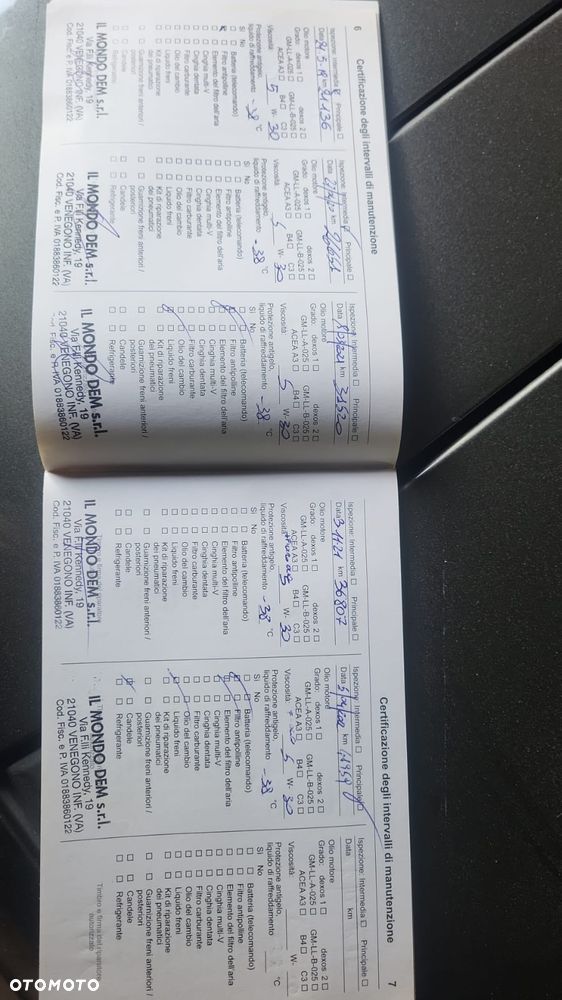 6 Certificazione degli intervalli di manutenzione
Ispezione: Intermedia Principale
Data km 21136
Olio motore
Grado: dexos 1 dexos 2
GM-LL-A-025 GM-LL-B-025
ACEA A3 B4 C3
Viscosità 5 W- 30
Protezione antigelo,
liquido di raffreddamento -38 °C
Sì No
Batteria (telecomando)
Filtro antipolline
Elemento del filtro dell'aria
Cinghia multi-V
Cinghia dentata
Filtro carburante
Olio del cambio
Liquido freni
Kit di riparazione
dei pneumatici
Guarnizione freni anteriori /
posteriori
Candele
Refrigerante
IL MONDO DEM s.r.l.
Via F.lli Kennedy, 19
21040 VENEGONO INF. (VA)
Cod. Fisc. e P. IVA 01883860122
Ispezione: Intermedia Principale
Data km
Olio motore
Grado: dexos 1 dexos 2
GM-LL-A-025 GM-LL-B-025
ACEA A3 B4 C3
Viscosità 5 W- 30
Protezione antigelo,
liquido di raffreddamento -38 °C
Sì No
Batteria (telecomando)
Filtro antipolline
Elemento del filtro dell'aria
Cinghia multi-V
Cinghia dentata
Filtro carburante
Olio del cambio
Liquido freni
Kit di riparazione
dei pneumatici
Guarnizione freni anteriori /
posteriori
Candele
Refrigerante
IL MONDO DEM s.r.l.
Via F.lli Kennedy, 19
21040 VENEGONO INF. (VA)
Cod. Fisc. e P. IVA 01883860122
Ispezione: Intermedia Principale
Data km 31520
Olio motore
Grado: dexos 1 dexos 2
GM-LL-A-025 GM-LL-B-025
ACEA A3 B4 C3
Viscosità 5 W- 30
Protezione antigelo,
liquido di raffreddamento -38 °C
Sì No
Batteria (telecomando)
Filtro antipolline
Elemento del filtro dell'aria
Cinghia multi-V
Cinghia dentata
Filtro carburante
Olio del cambio
Liquido freni
Kit di riparazione
dei pneumatici
Guarnizione freni anteriori /
posteriori
Candele
Refrigerante
IL MONDO DEM s.r.l.
Via F.lli Kennedy, 19
21040 VENEGONO INF. (VA)
Fisc. e P. IVA 01883860122
Certificazione degli intervalli di manutenzione 7
Ispezione: Intermedia Principale
Data km 36807
Olio motore
Grado: dexos 1 dexos 2
GM-LL-A-025 GM-LL-B-025
ACEA A3 B4 C3
Viscosità 5 W- 30
Protezione antigelo,
liquido di raffreddamento -38 °C
Sì No
Batteria (telecomando)
Filtro antipolline
Elemento del filtro dell'aria
Cinghia multi-V
Cinghia dentata
Filtro carburante
Olio del cambio
Liquido freni
Kit di riparazione
dei pneumatici
Guarnizione freni anteriori /
posteriori
Candele
Refrigerante
IL MONDO DEM s.r.l.
Via F.lli Kennedy, 19
21040 VENEGONO INF. (VA)
Cod. Fisc. e P. IVA 01883860122
Ispezione: Intermedia Principale
Data km
Olio motore
Grado: dexos 1 dexos 2
GM-LL-A-025 GM-LL-B-025
ACEA A3 B4 C3
Viscosità 5 W- 30
Protezione antigelo,
liquido di raffreddamento -38 °C
Sì No
Batteria (telecomando)
Filtro antipolline
Elemento del filtro dell'aria
Cinghia multi-V
Cinghia dentata
Filtro carburante
Olio del cambio
Liquido freni
Kit di riparazione
dei pneumatici
Guarnizione freni anteriori /
posteriori
Candele
Refrigerante
IL MONDO DEM s.r.l.
Via F.lli Kennedy, 19
21040 VENEGONO INF. (VA)
Cod. Fisc. e P. IVA 01883860122
Ispezione: Intermedia Principale
Data km
Olio motore
Grado: dexos 1 dexos 2
GM-LL-A-025 GM-LL-B-025
ACEA A3 B4 C3
Viscosità W-
Protezione antigelo,
liquido di raffreddamento °C
Sì No
Batteria (telecomando)
Filtro antipolline
Elemento del filtro dell'aria
Cinghia multi-V
Cinghia dentata
Filtro carburante
Olio del cambio
Liquido freni
Kit di riparazione
dei pneumatici
Guarnizione freni anteriori /
posteriori
Candele
Refrigerante
Timbro e firma del riparatore
autorizzato
OTOMOTO